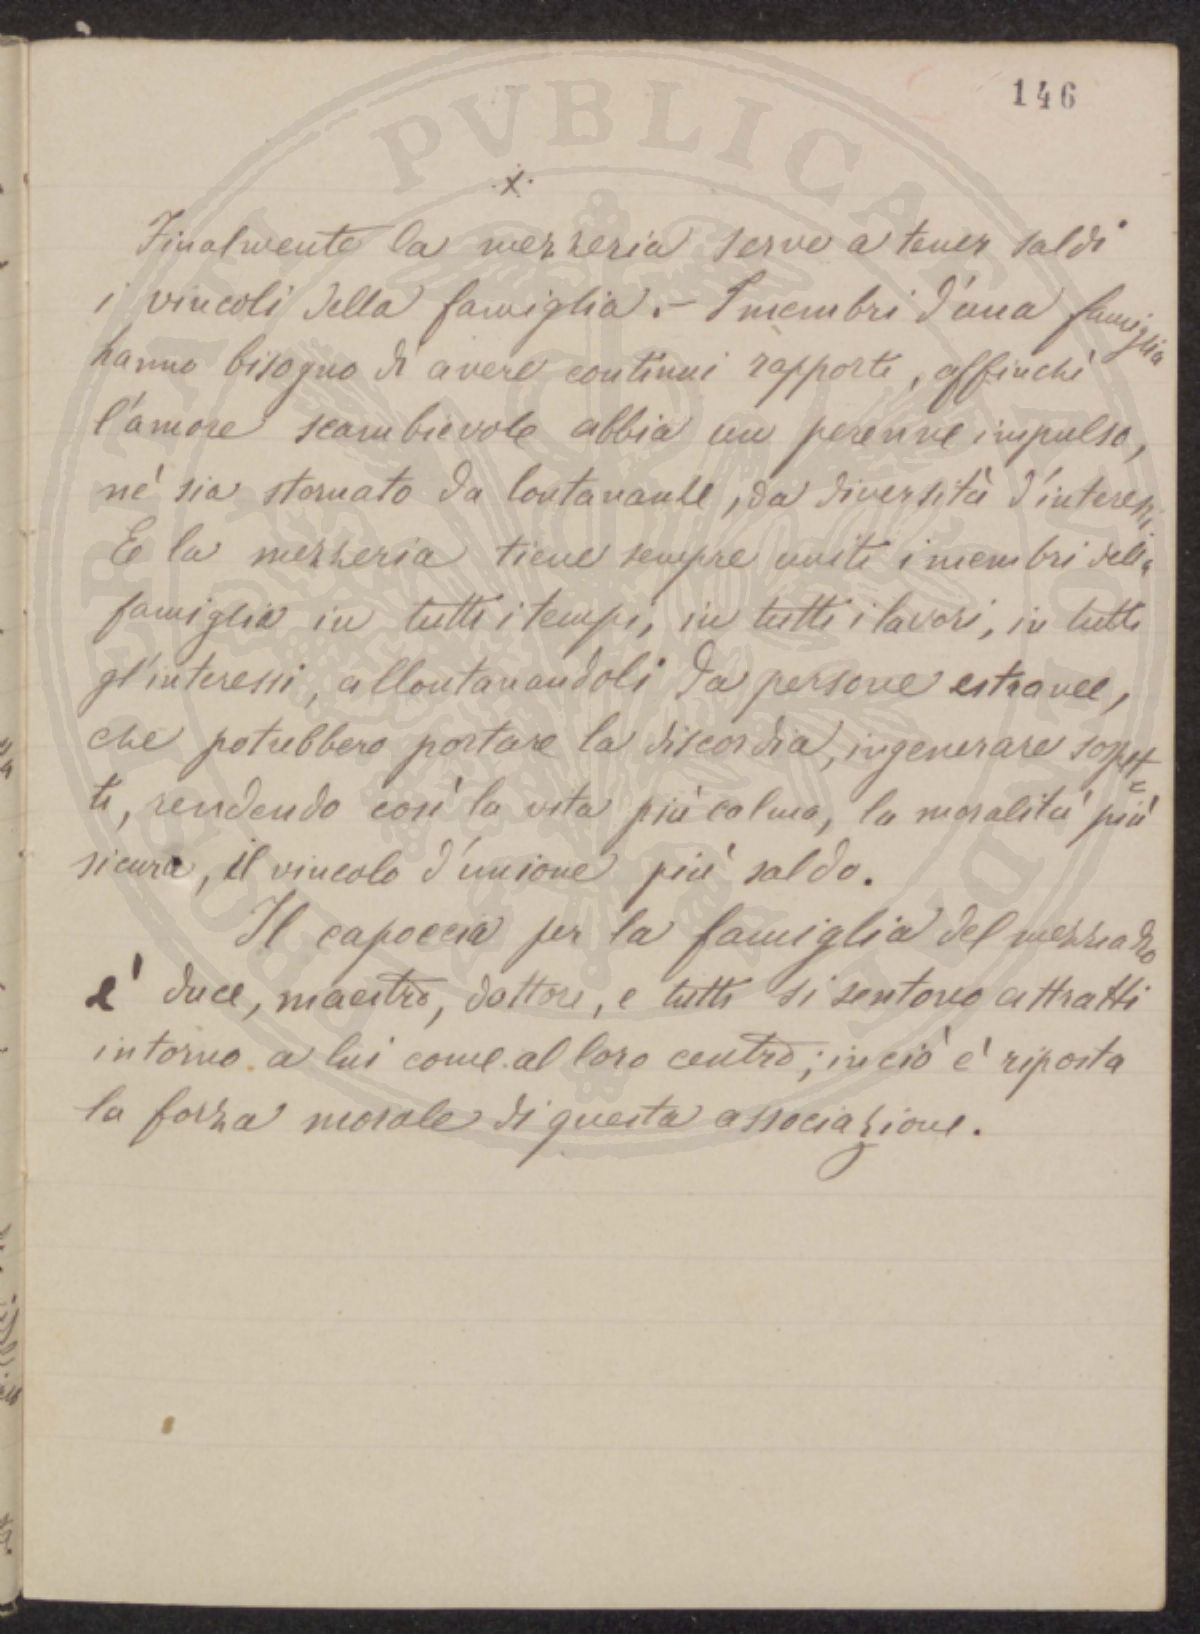 146
.x.
Finalmente la mezzeria serve a tener saldi
i vincoli della famiglia. – I membri d'una famiglia
hanno bisogno di avere continui rapporti, affinchè
l'amore scambievole abbia un perenne impulso,
nè sia stornato da lontananze, da diversità d'interessi.
E la mezzeria tiene sempre uniti i membri della
famiglia in tutti i tempi, in tutti i lavori, in tutti
gl'interessi, allontanandoli da persone estranee,
che potrebbero portare la discordia, ingenerare sospet=
ti, rendendo così la vita più calma, la moralità più
sicura, il vincolo d'unione più saldo.
Il capoccia per la famiglia del mezziadro
è duce, maestro, dottore, e tutti si sentono attratti
intorno a lui come al loro centro; in ciò è riposta
la forza morale di questa associazione.